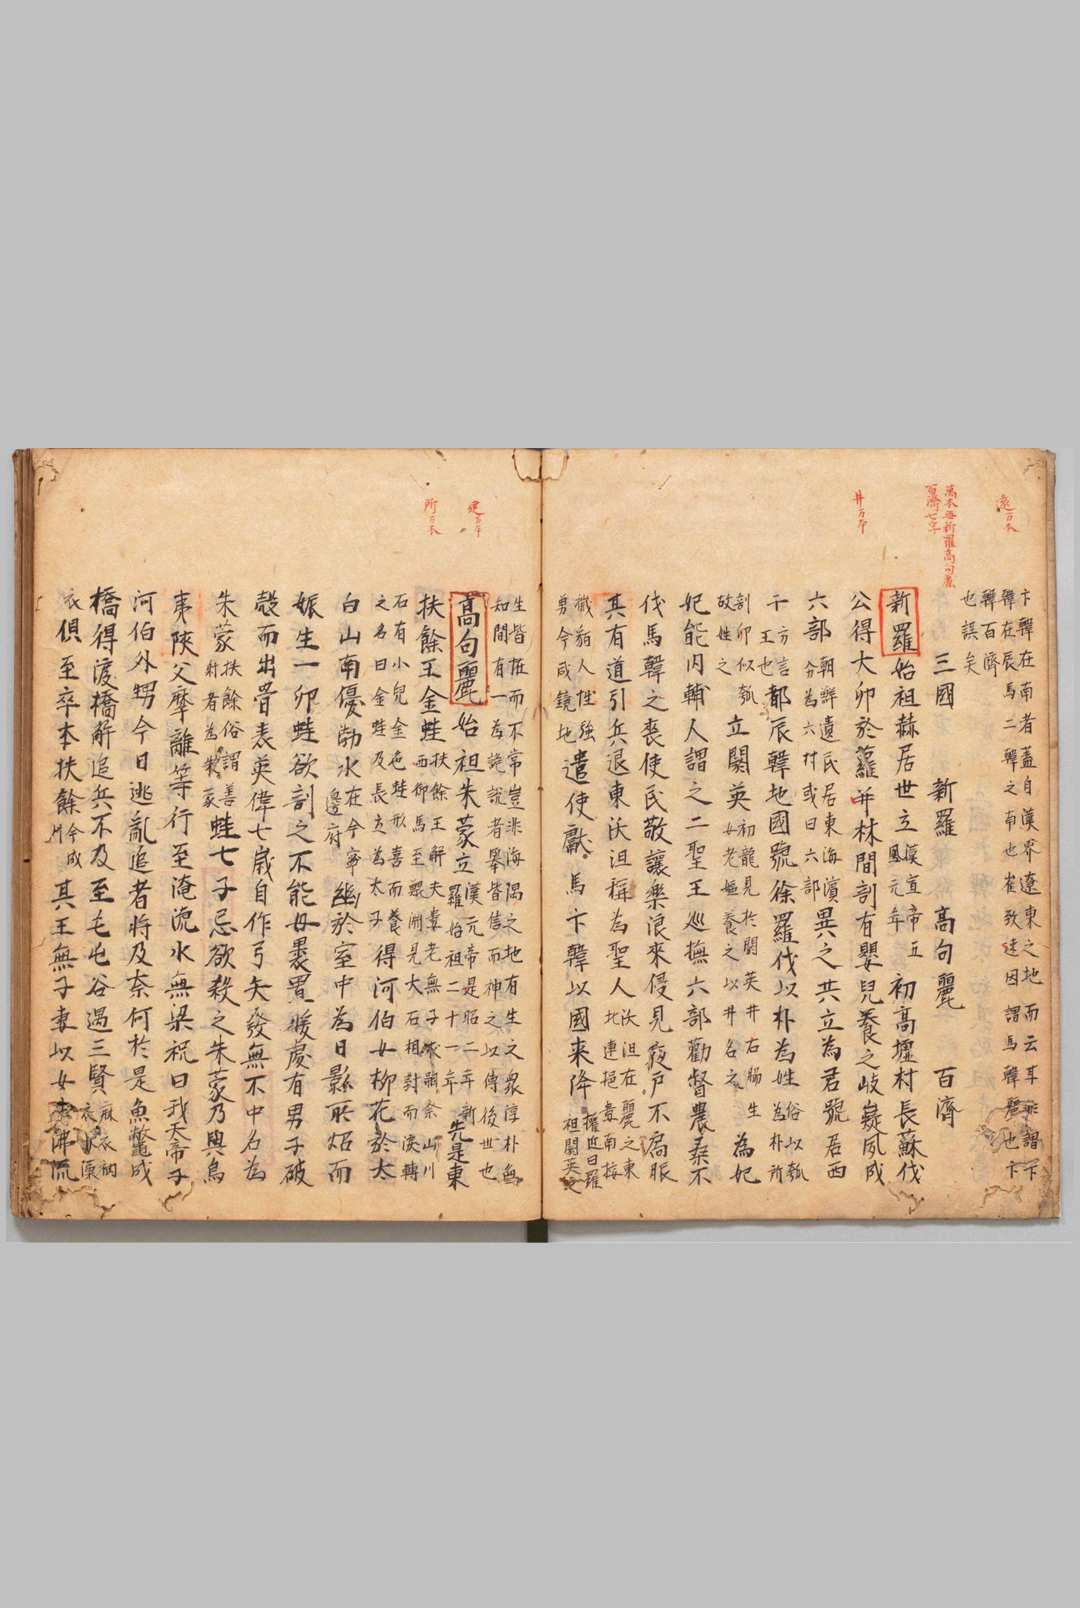 遠万本
萬本無新羅高句麗
百濟七字
井万本
卞韓在南者蓋自漢界遼東之地而云耳乖謂卞
韓在辰馬二韓之南也崔致遠因謂馬韓麗也卞
韓百濟
也誤矣
三國 新羅 高句麗 百濟
新羅始祖赫居世立漢宣帝五鳳元年初高墟村長蘇伐
公得大卵於蘿井林間剖有嬰兒養之岐嶷夙成
六部朝鮮遺民居東海濱分為六村或曰六部異之共立為君號居西
干方言王也都辰韓地國號徐羅伐以朴為姓俗以瓠為朴所
剖卵似瓠故姓之立閼英初龍見於閼英井右脇生女老嫗養之以井名之為妃
妃能內輔人謂之二聖王巡撫六部勸督農桑不
伐馬韓之喪使民敬讓樂浪來侵見夜戶不扃賑
其有道引兵退東沃沮稱為聖人沃沮在麗之東北連挹婁南接
濊貊人性強勇今咸鏡地遣使獻馬卞韓以國來降權近曰羅祖閼英之
建万本
所万本
生皆怪而不常豈非海隅之地有生之衆淳朴無
知間有一為詭說者擧皆信而神之以傳後世也
高句麗始祖朱蒙立漢元帝是昭二年新羅始祖二十一年先是東
扶餘王金蛙扶餘王解夫婁老無子求嗣祭山川西御馬至鯤淵見大石相對而淚轉
石有小兒金色蛙形喜而養之名曰金蛙及長立為太子得河伯女柳花於太
白山南優渤水在今寧邊府幽於室中為日影所炤而
娠生一卵蛙欲剖之不能母裹置暖處有男子破
殼而出骨表英偉七歲自作弓矢發無不中名為
朱蒙扶餘俗謂善射者為朱蒙蛙七子忌欲殺之朱蒙乃與烏
夷陝父摩離等行至淹㴲水無梁祝曰我天帝子
河伯外甥今日逃亂追者將及奈何於是魚鼈成
橋得渡橋解追兵不及至毛屯谷遇三賢麻衣衲衣水藻
衣俱至卒本扶餘今成川其王無子妻以女沸流